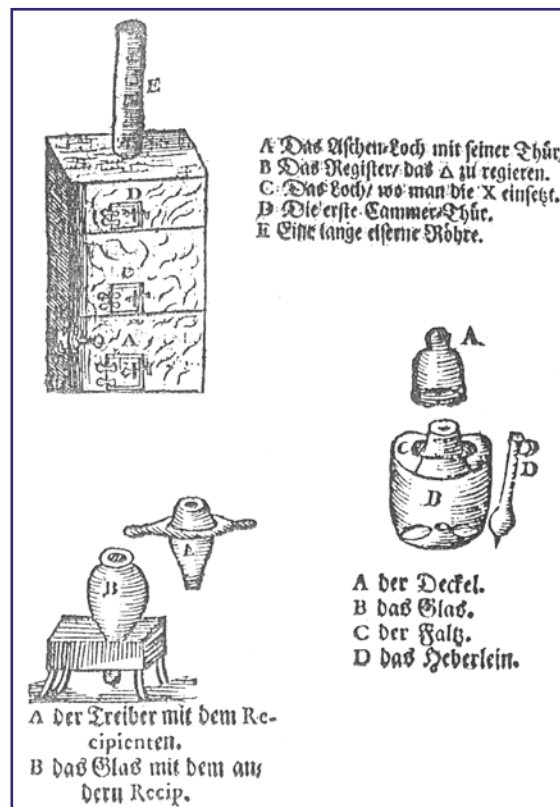 E
D
C
A
A Das Aschen-Loch mit seiner Thür.
B Das Register/ das △ zu regieren.
C Das Loch/ wo man die X einsetzt.
D Die erste Cammer-Thür.
E Eine lange eiserne Röhre.
A
C
D
B
A der Deckel.
B das Glas.
C der Faltz.
D das Heberlein.
A
B
A der Treiber mit dem Re-
cipienten.
B das Glas mit dem an/
dern Recip.